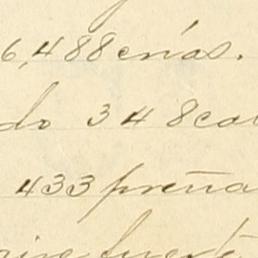 6,488 crías.
do 348 ca
433 preña